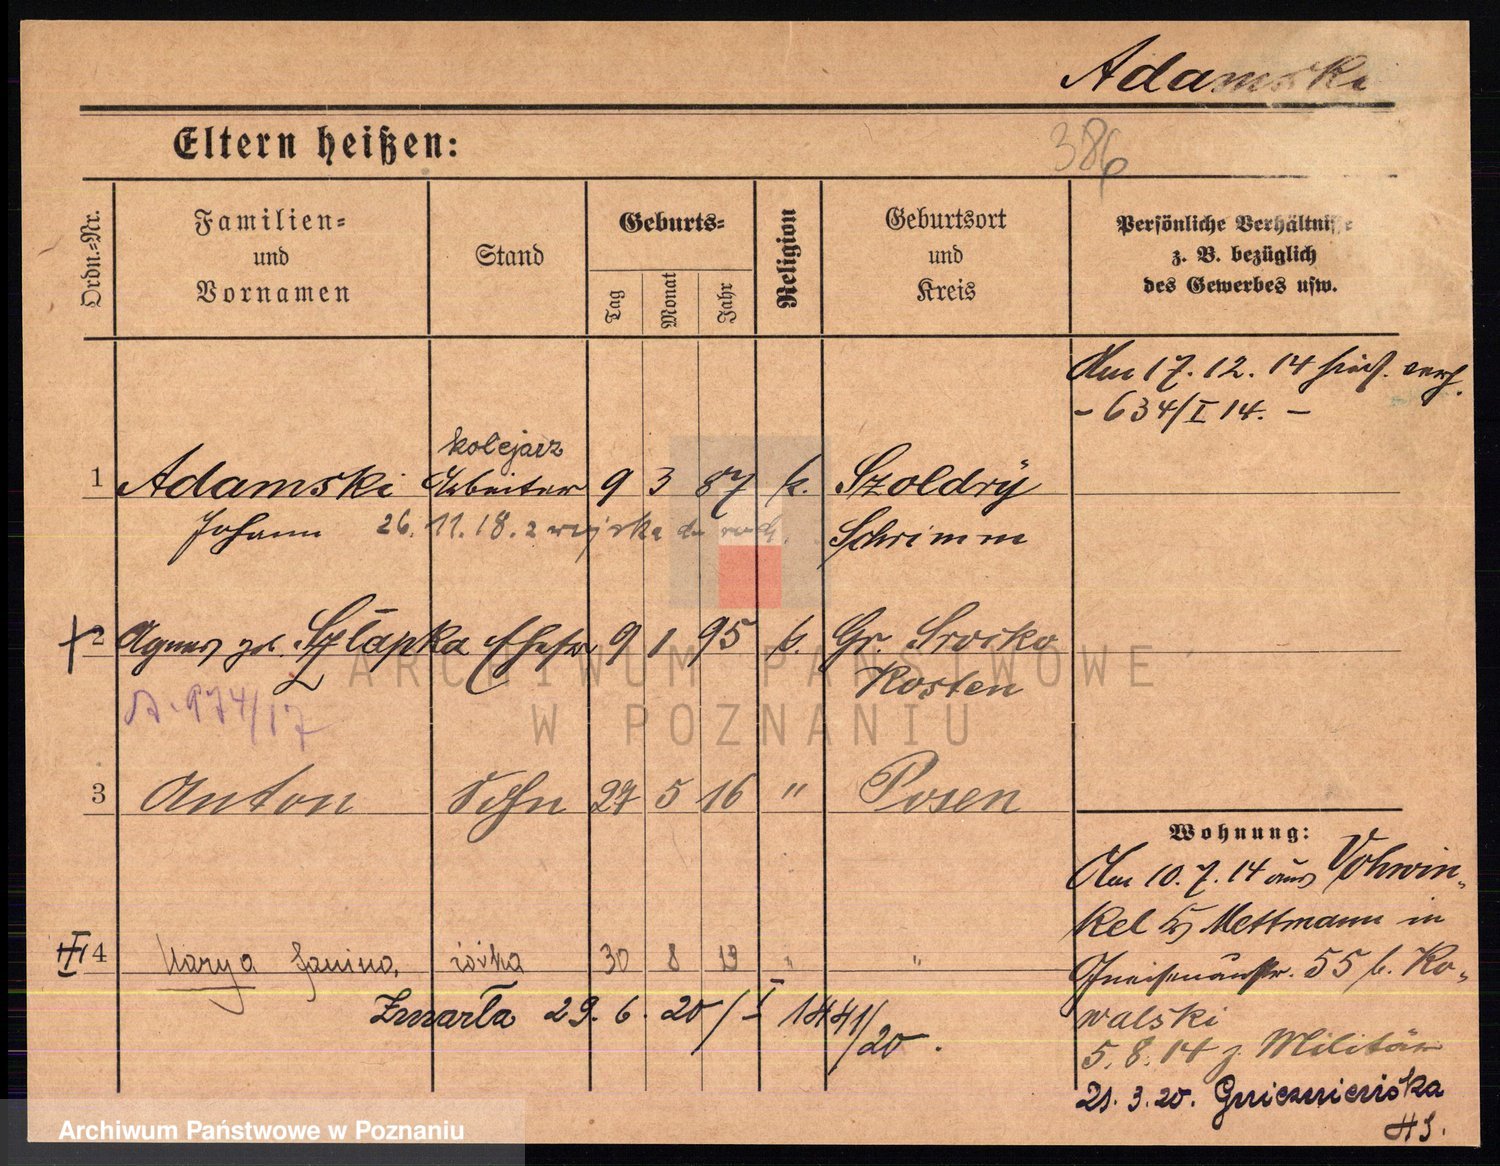 Adamski
386
Eltern heißen:
Ordn.-Nr.
Familien-
und
Vornamen
Stand
Geburts-
Tag
Monat
Jahr
Religion
Geburtsort
und
Kreis
Persönliche Verhältnisse
z. B. bezüglich
des Gewerbes usw.
Am 17. 12. 14 hies. verh.
- 634/I 14. -
kolejarz
1 Adamski Arbeiter 9 3 87 k. Szoldry
Johann 26. 11. 18. z wojska Schrimm
2 Agnes geb. Szłapka Ehefr. 9 1 95 k. Gr. Srocko
Kosten
A. 974/17
3 Anton Sohn 27 5 16 " Posen
Wohnung:
Am 10. 7. 14 aus Vohwin-
kel Mettmann in
Gneisenaustr. 55 b. Ko-
walski
5. 8. 14 z. Militär
21. 3. 20. Gnieznieńska
4 Marya Janina, córka 30 8 19 " "
Zmarła 29. 6. 20 / I 1441/20.
ARCHIWUM PAŃSTWOWE
W POZNANIU
Archiwum Państwowe w Poznaniu